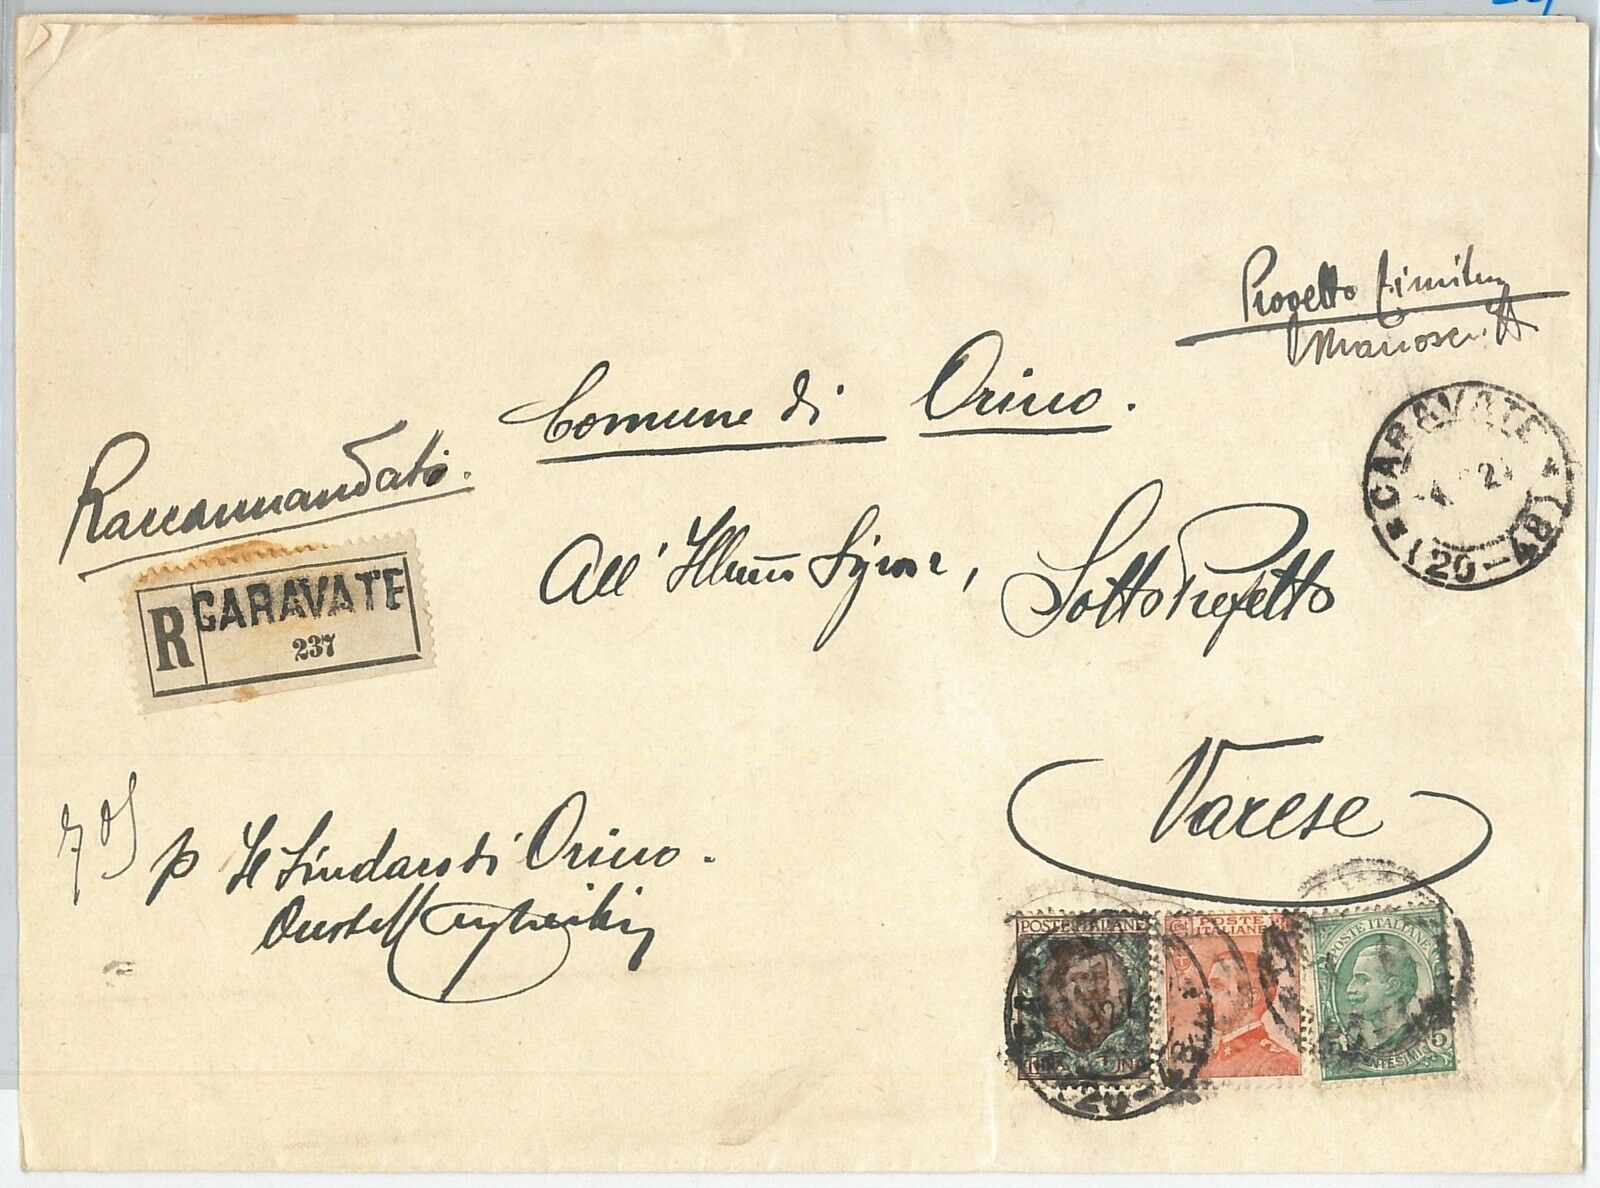 Progetto
Manoscritti
Comune di Orino.
CARAVATE
(20-48)
Raccomandato.
All' Illmo Signor,
Sotto Prefetto
R CARAVATE
237
Varese
p Il Sindaco di Orino.
POSTE ITALIANE
LIRA UNA
POSTE
ITALIANE
POSTE ITALIANE
5
CENTESIMI